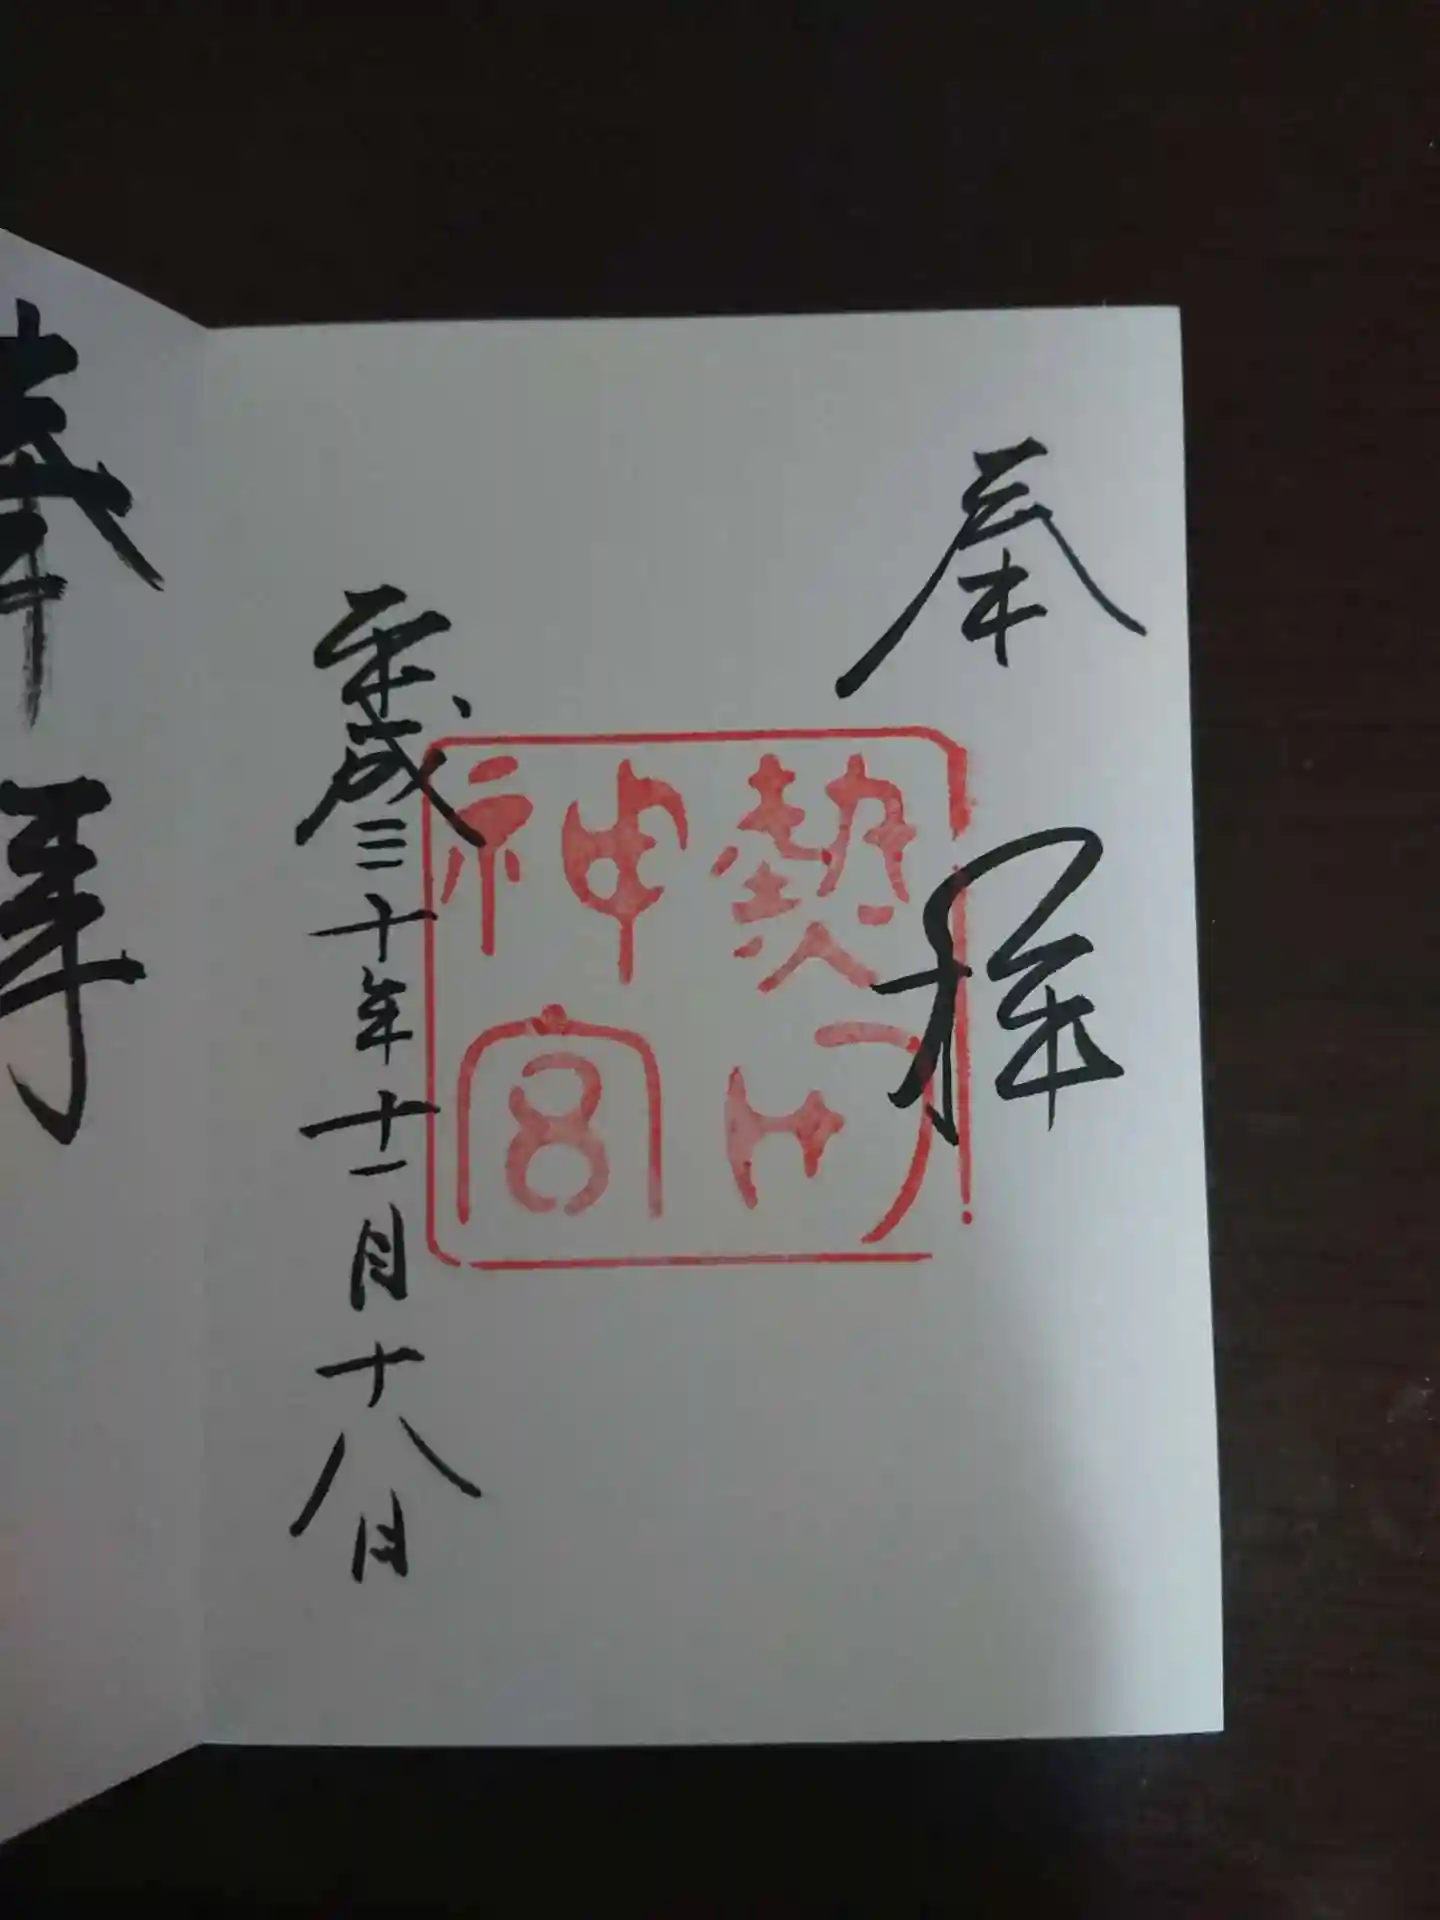 奉拝
熱田
神宮
平成三十年十一月十八日
奉拝